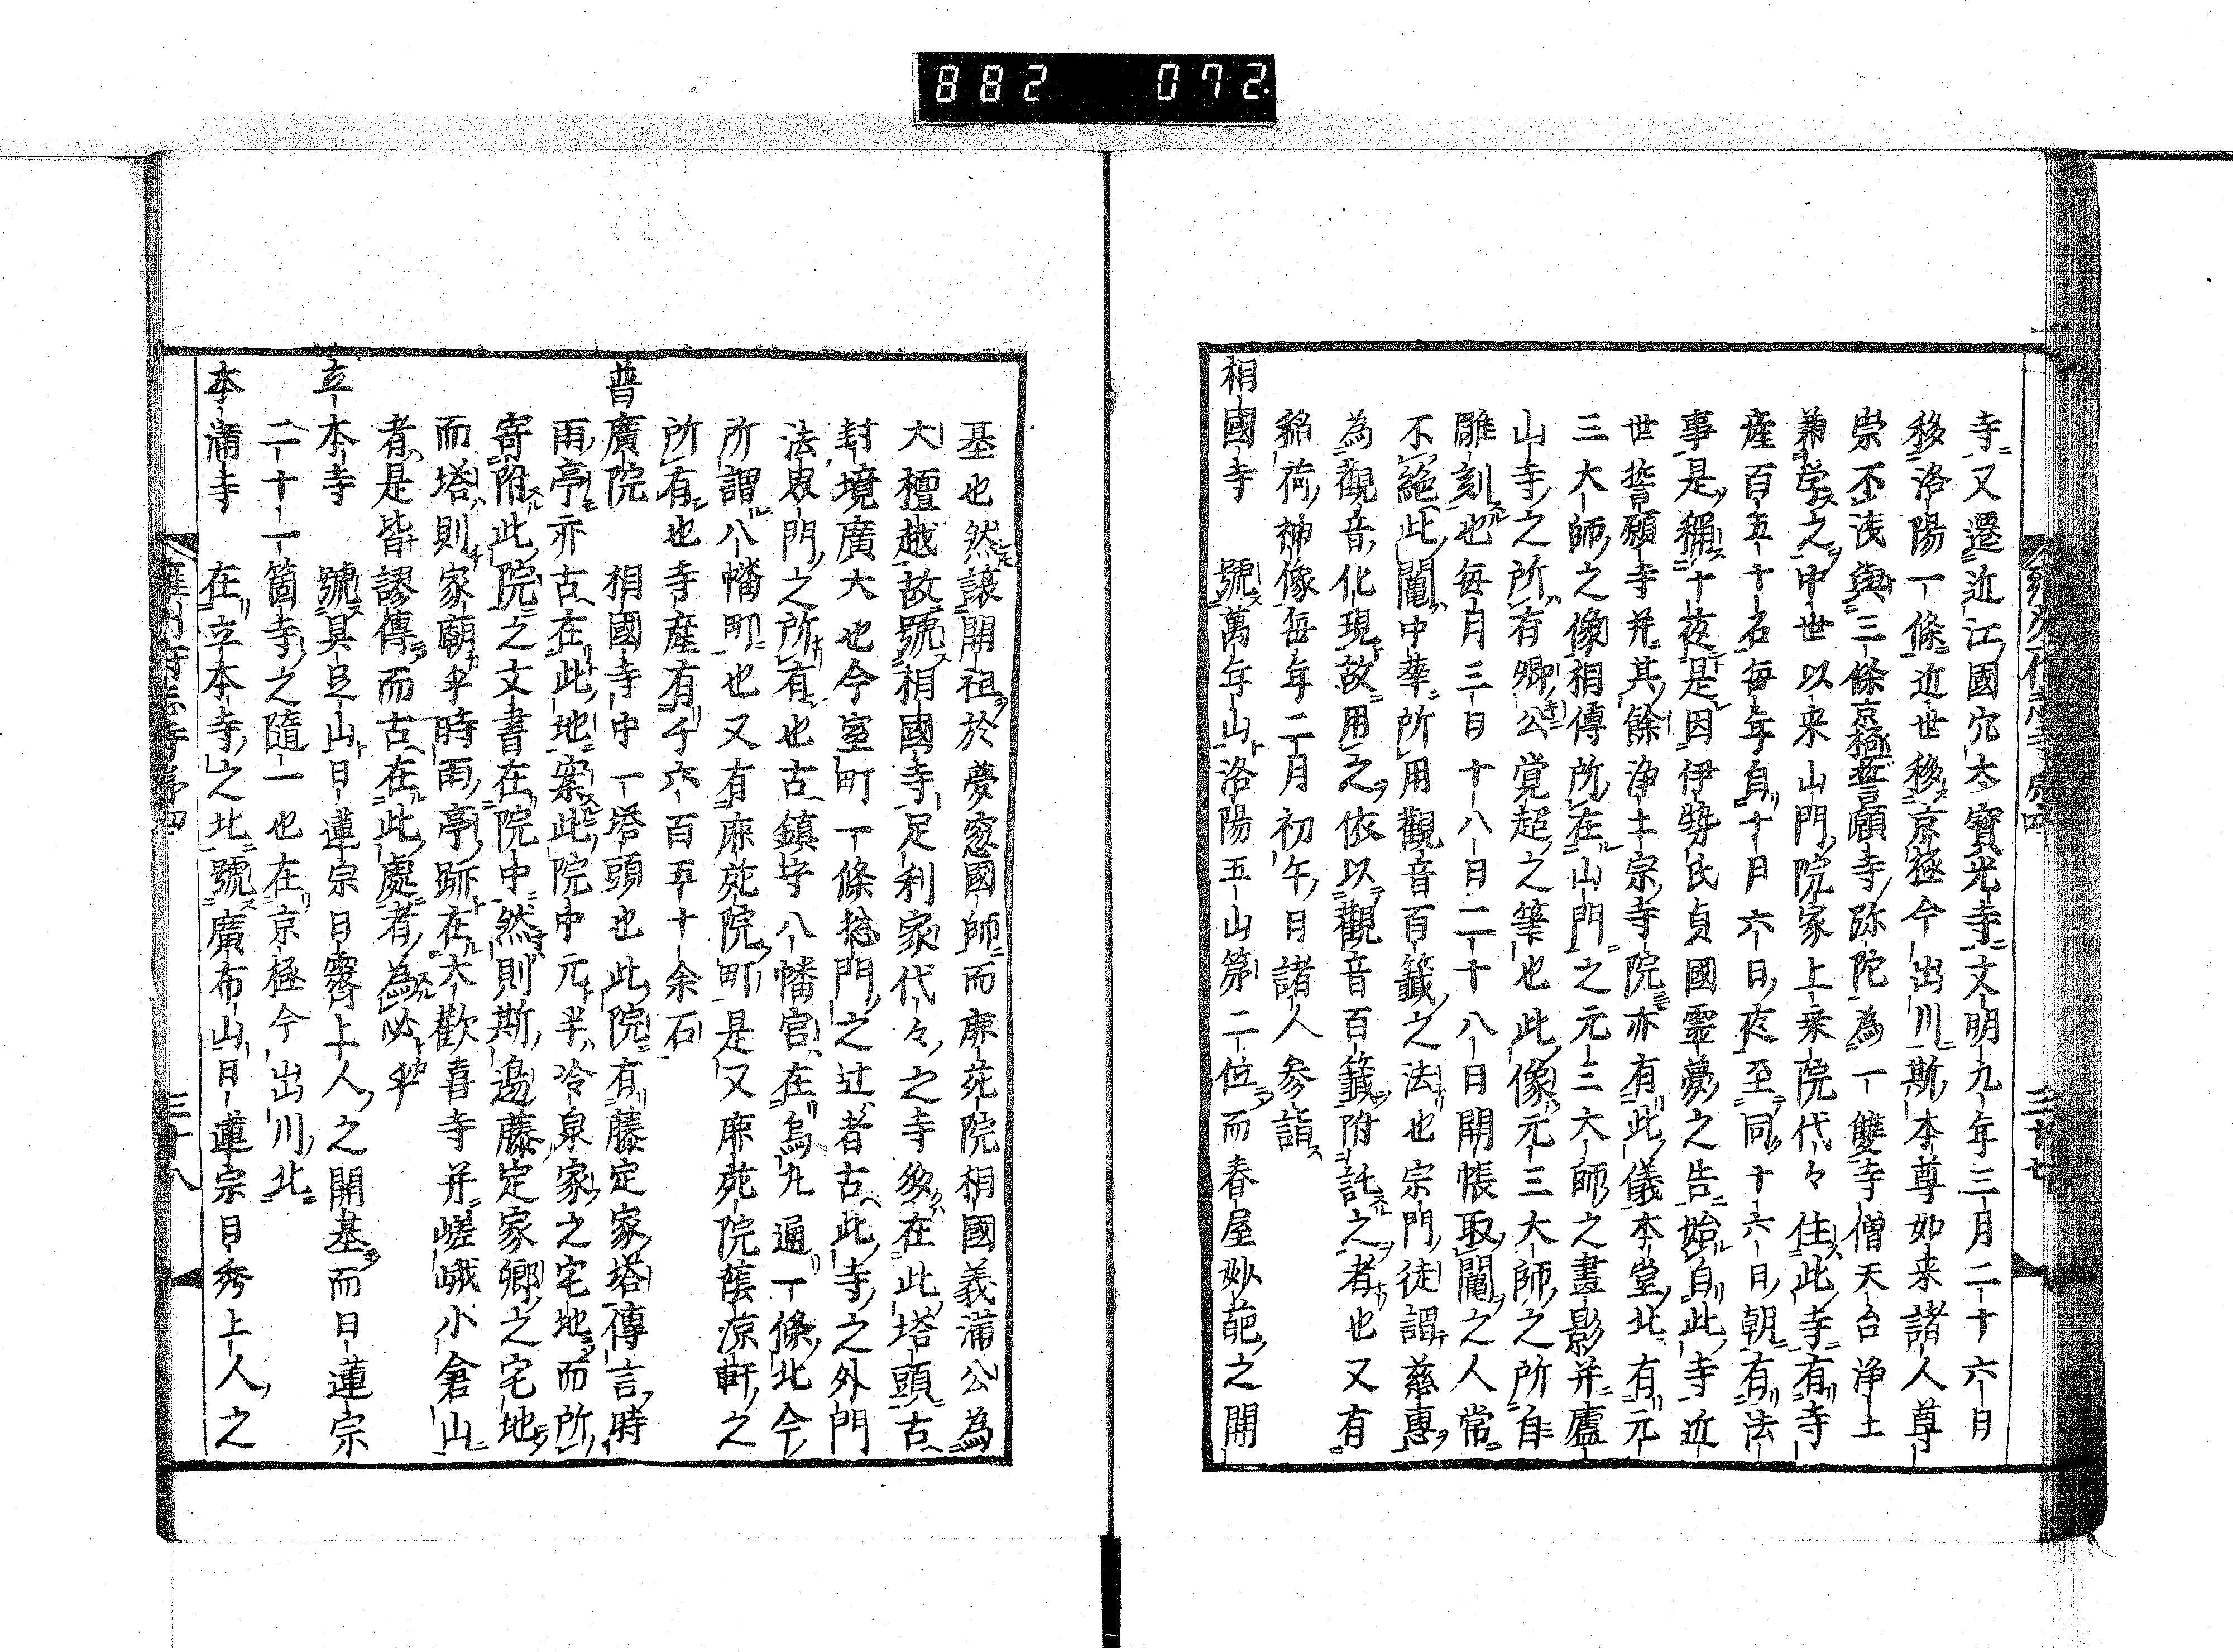 882 072
寺又遷近江國穴太寳光寺文明九年三月二十六日
移洛陽一條近世移京極今出川斯本尊如来諸人尊
崇不浅與三條京極誓願寺弥陀為一雙寺僧天台浄土
兼学之中世以来山門院家上乗院代々住此寺有寺
産百五十名毎年自十月六日夜至同十六日朝有法
事是稱十夜是因伊勢氏貞國霊夢之告始自此寺近
世誓願寺并其餘浄土宗寺院亦有此儀本堂北有元
三大師之像相傳所在山門之元三大師之畫影并廬
山寺之所有卿公覚超之筆也此像元三大師之所自
雕刻也毎月三日十八日二十八日開帳取鬮之人常
不絶此鬮中華所用觀音百籤之法也宗門徒謂慈惠
為觀音化現故用之依以觀音百籤附託之者也又有
稲荷神像毎年二月初午日諸人参詣
相國寺 號萬年山洛陽五山第二位而春屋妙葩之開
基也然譲開祖於夢窓國師而鹿苑院相國義満公為
大檀越故號相國寺足利家代々之寺多在此塔頭古
封境廣大也今室町一條惣門之辻者古此寺之外門
法界門之所有也古鎮守八幡宮在烏丸通一條北今
所謂八幡町也又有鹿苑院町是又鹿苑院蔭凉軒之
所有也寺産有千六百五十余石
普廣院 相國寺中一塔頭也此院有藤定家塔傳言時
雨亭亦古在此地案此院中元半冷泉家之宅地而所
寄附此院之文書在院中然則斯邊藤定家卿之宅地
而塔則家廟乎時雨亭跡在大歡喜寺并嵯峨小倉山
者是皆謬傳而古在此處者為必乎
立本寺 號具足山日蓮宗日霽上人之開基而日蓮宗
二十一箇寺之隨一也在京極今出川北
本満寺 在立本寺之北號廣布山日蓮宗日秀上人之
三十七
雍州府志寺第四
三十八